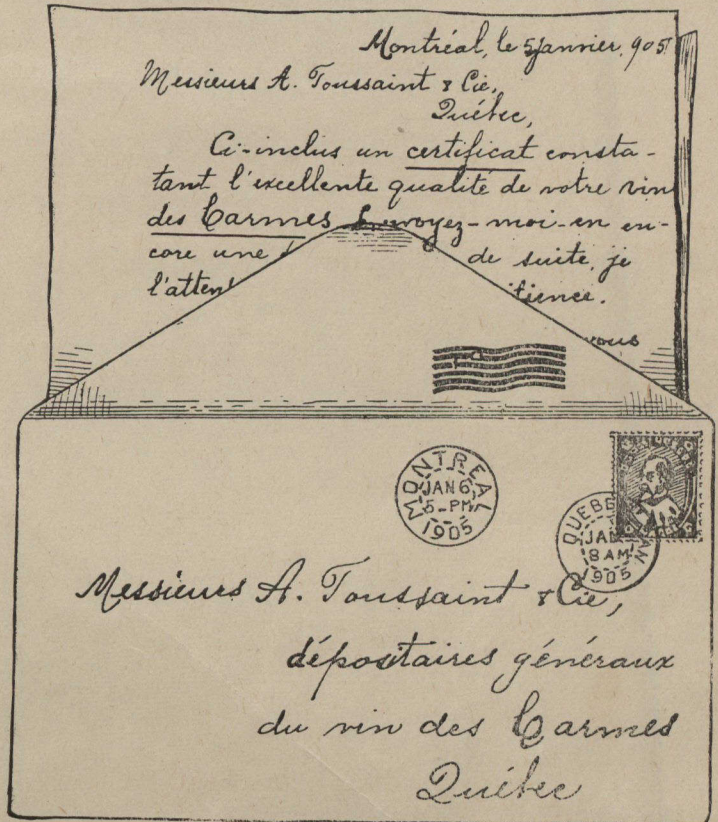 Montréal, le 5 janvier, 905
Messieurs A. Toussaint & Cie,
Québec,
Ci-inclus un certificat consta-
tant l'excellente qualité de votre vin
des Carmes Envoyez-moi-en en-
core une de suite, je
l'atten tience.
vous
MONTREAL
JAN 6,
5-PM
1905
QUEBEC CAN
JAN
8 AM
1905
Messieurs A. Toussaint & Cie,
dépositaires généraux
du vin des Carmes
Québec